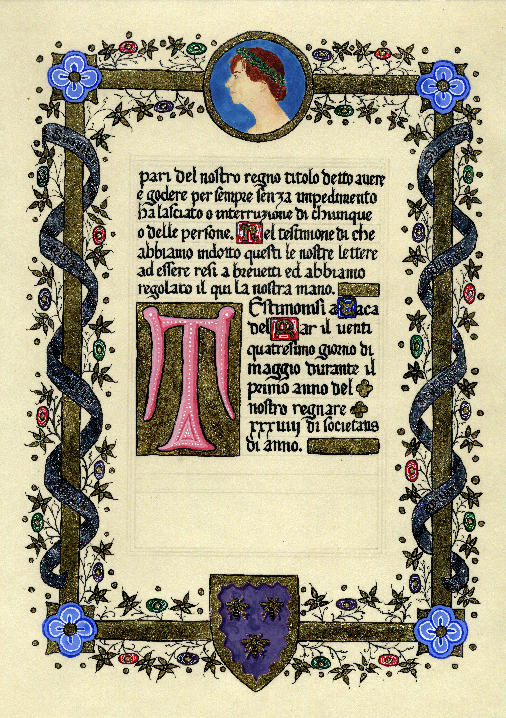 pari del nostro regno titolo detto avere
e godere per sempre senza impedimento
ha lasciato o interruzione di chiunque
o delle persone. Nel testimone di che
abbiamo indotto questi le nostre lettere
ad essere resi a brevetti ed abbiamo
regolato il qui la nostra mano.
TEstimomisi a Baca
del Mar il venti
quatresimo giorno di
maggio durante il
primo anno del
nostro regnare
xxxviiij di societatis
di anno.